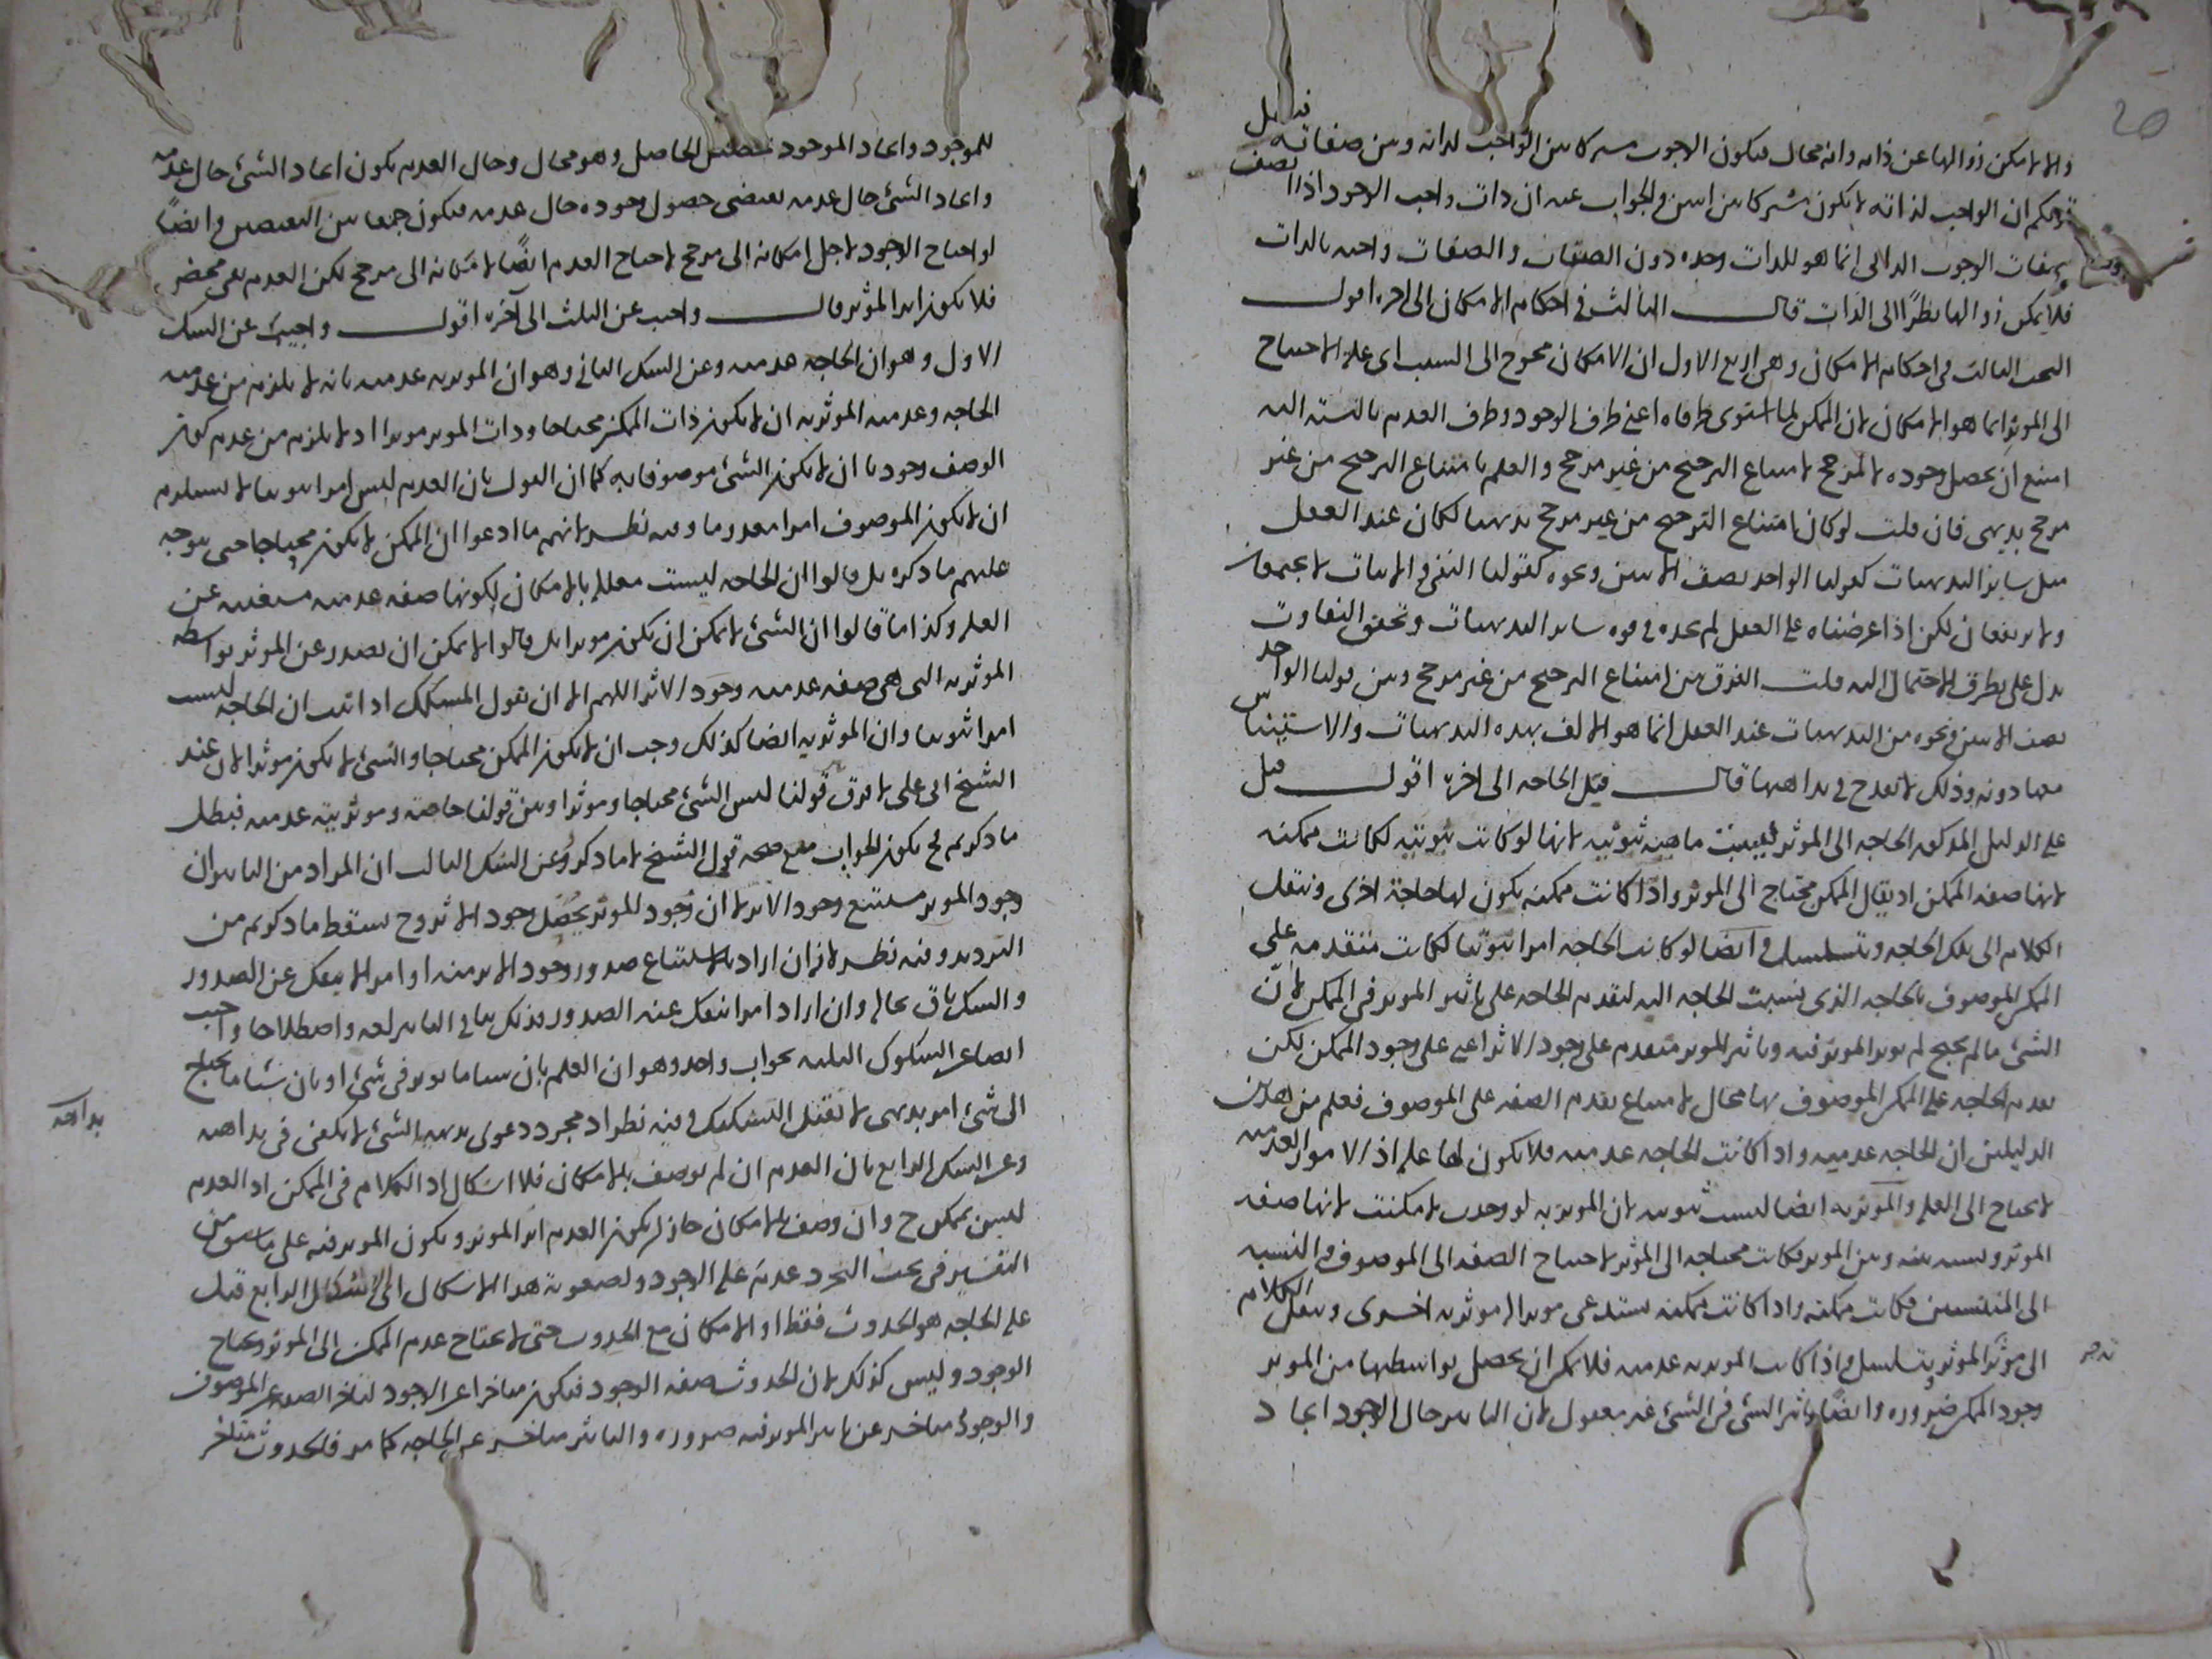 والا لامكن زوالها عن ذاته وانه محال فيكون الوجوب مشتركا بين الواجب لذاته وبين صفاته
قولكم ان الواجب لذاته لا يكون مشتركا بين اثنين والجواب عنه ان ذات واجب الوجود اذا اتصف
بصفات الوجوب الذاتي انما هو للذات وحده دون الصفات والصفات واجبه بالذات
فلا يمكن زوالها نظرًا الى الذات قال الثالث في احكام الامكان الى اخره اقول
البحث الثالث في احكام الامكان وهي اربع الاول ان الامكان محوج الى السبب اى علة الاحتياج
الى الموثر انما هو الامكان لان الممكن لما استوى طرفاه اعنى طرف الوجود وطرف العدم بالنسبه اليه
امتنع ان يحصل وجوده الا لمرجح لامتناع الترجيح من غير مرجح والعلم بامتناع الترجيح من غير
مرجح بديهى فان قلت لو كان امتناع الترجيح من غير مرجح بديهيا لكان عند العقل
مثل ساير البديهيات كقولنا الواحد نصف الاثنين ونحوه كقولنا النفى والاثبات لا يجتمعان
ولا يرتفعان لكن اذا عرضناه على العقل لم نجده في قوه ساير البديهيات وتحقق التفاوت
يدل على تطرق الاحتمال اليه قلت الفرق بين امتناع الترجيح من غير مرجح وبين قولنا الواحد
نصف الاثنين ونحوه من البديهيات عند العقل انما هو الالف بهذه البديهيات والاستيناس
بها دونه وذلك لا يقدح في بداهتها قال قيل الحاجه الى اخره اقول قيل
على الدليل المذكور الحاجه الى الموثر ليست ماهيه ثبوتيه لانها لو كانت ثبوتيه لكانت ممكنه
لانها صفه الممكن اذ يقال الممكن محتاج الى الموثر واذا كانت ممكنه يكون لها حاجة اخرى وننقل
الكلام الى تلك الحاجه ويتسلسل وايضا لو كانت الحاجه امرا ثبوتيا لكانت متقدمه على
الممكن الموصوف بالحاجه الذى نسبت الحاجه اليه لتقدم الحاجه على تاثير الموثر في الممكن لان
الشئ ما لم يحتج لم يوثر الموثر فيه وتاثير الموثر متقدم على وجود الاثر اعنى على وجود الممكن لكن
تقدم الحاجه على الممكن الموصوف بها محال لامتناع تقدم الصفه على الموصوف فعلم من هذين
الدليلين ان الحاجه عدميه واذا كانت الحاجه عدميه فلا يكون لها علة اذ الامور العدميه
لا يحتاج الى العلة والموثريه ايضا ليست ثبوتيه لان الموثريه لو وجدت لامكنت لانها صفه
الموثر ونسبه بينه وبين الموثر فكانت محتاجه الى الموثر لاحتياج الصفه الى الموصوف والنسبه
الى المنتسبين فكانت ممكنه واذا كانت ممكنه تستدعى موثرا له موثريه اخرى وننقل الكلام
الى موثر الموثريه ويتسلسل واذا كانت الموثريه عدميه فلا يمكن ان يحصل بواسطتها من الموثر
وجود الممكن ضروره وايضًا تاثير الشئ في الشئ غير معقول لان التاثير حال الوجود ايجاد
للموجود وايجاد الموجود تحصيل الحاصل وهو محال وحال العدم يكون ايجاد الشئ حال عدمه
وايجاد الشئ حال عدمه يقتضى حصول وجوده حال عدمه فيكون جمعا بين النقيضين وايضًا
لو احتاج الوجود لاجل امكانه الى مرجح لاحتاج العدم ايضًا لامكانه الى مرجح لكن العدم نفى محض
فلا يكون اثر الموثر قال واجيب عن الثلث الى آخره اقول واجيب عن الشك
الاول وهو ان الحاجه عدميه وعن الشك الثانى وهو ان الموثريه عدميه بانه لا يلزم من عدميه
الحاجه وعدميه الموثريه ان لا يكون ذات الممكن محتاجا وذات الموثر موثرا اذ لا يلزم من عدم كون
الوصف وجوديا ان لا يكون الشئ موصوفا به كما ان القول بان العدم ليس امرا ثبوتيا لا يستلزم
ان لا يكون الموصوف امرا معدوما وفيه نظر لانهم ما ادعوا ان الممكن لا يكون محتاجا حتى يتوجه
عليهم ما ذكره بل قالوا ان الحاجه ليست معلله بالامكان لكونها صفه عدميه مستغنيه عن
العلة وكذا ما قالوا ان الشئ لا يمكن ان يكون موثرا بل قالوا لا يمكن ان يصدر عن الموثر بواسطه
الموثريه التى هى صفه عدميه وجود الاثر اللهم الا ان يقول المشكك اذا ثبت ان الحاجه ليست
امرا ثبوتيا وان الموثريه ايضا كذلك وجب ان لا يكون الممكن محتاجا والشئ لا يكون موثرا لان عند
الشيخ ابى على لا فرق قولنا ليس الشئ محتاجا وموثرا وبين قولنا حاجته وموثريته عدميه فبطل
ما ذكرتم ح يكون الجواب منع صحه قول الشيخ لا ما ذكر وعن الشك الثالث ان المراد من التاثير ان
وجود الموثر يستتبع وجود الاثر لا ان وجود الموثر يحصل وجود الاثر وح سقط ما ذكرتم من
الترديد وفيه نظر لانه ان اراد بالاستتباع صدور وجود الاثر منه او امرا لا ينفك عن الصدور
والشك باق بحاله وان اراد امرا ينفك عنه الصدور فذلك ينافى التاثير لغه واصطلاحا واجيب
ايضا عن الشكوك الثلثه بجواب واحد وهو ان العلم بان شيئا ما يوثر في شئ او بان شيئا ما يحتاج
الى شئ امر بديهى لا تقبل التشكيك وفيه نظر اذ مجرد دعوى بديهه الشئ لا يكفى في بداهته
وعن الشك الرابع بان العدم ان لم يوصف بالامكان فلا اشكال اذ الكلام في الممكن اذ العدم
ليس بممكن ح وان وصف بالامكان جاز ان يكون العدم اثر الموثر ويكون الموثر فيه على ما سبق من
التفسير في بحث عدمه على الوجود ولصعوبة هذا الاشكال الرابع قيل
علة الحاجه هو الحدوث فقط او الامكان مع الحدوث حتى لا يحتاج عدم الممكن الى الموثر ويحتاج
الوجود وليس كذلك لان الحدوث صفه الوجود فيكون متاخرا عن الوجود لتاخر الصفه عن الموصوف
والوجود متاخر عن تاثير الموثر فيه ضروره والتاثير متاخر عن الحاجه كما مر فالحدوث متاخر
بداهته